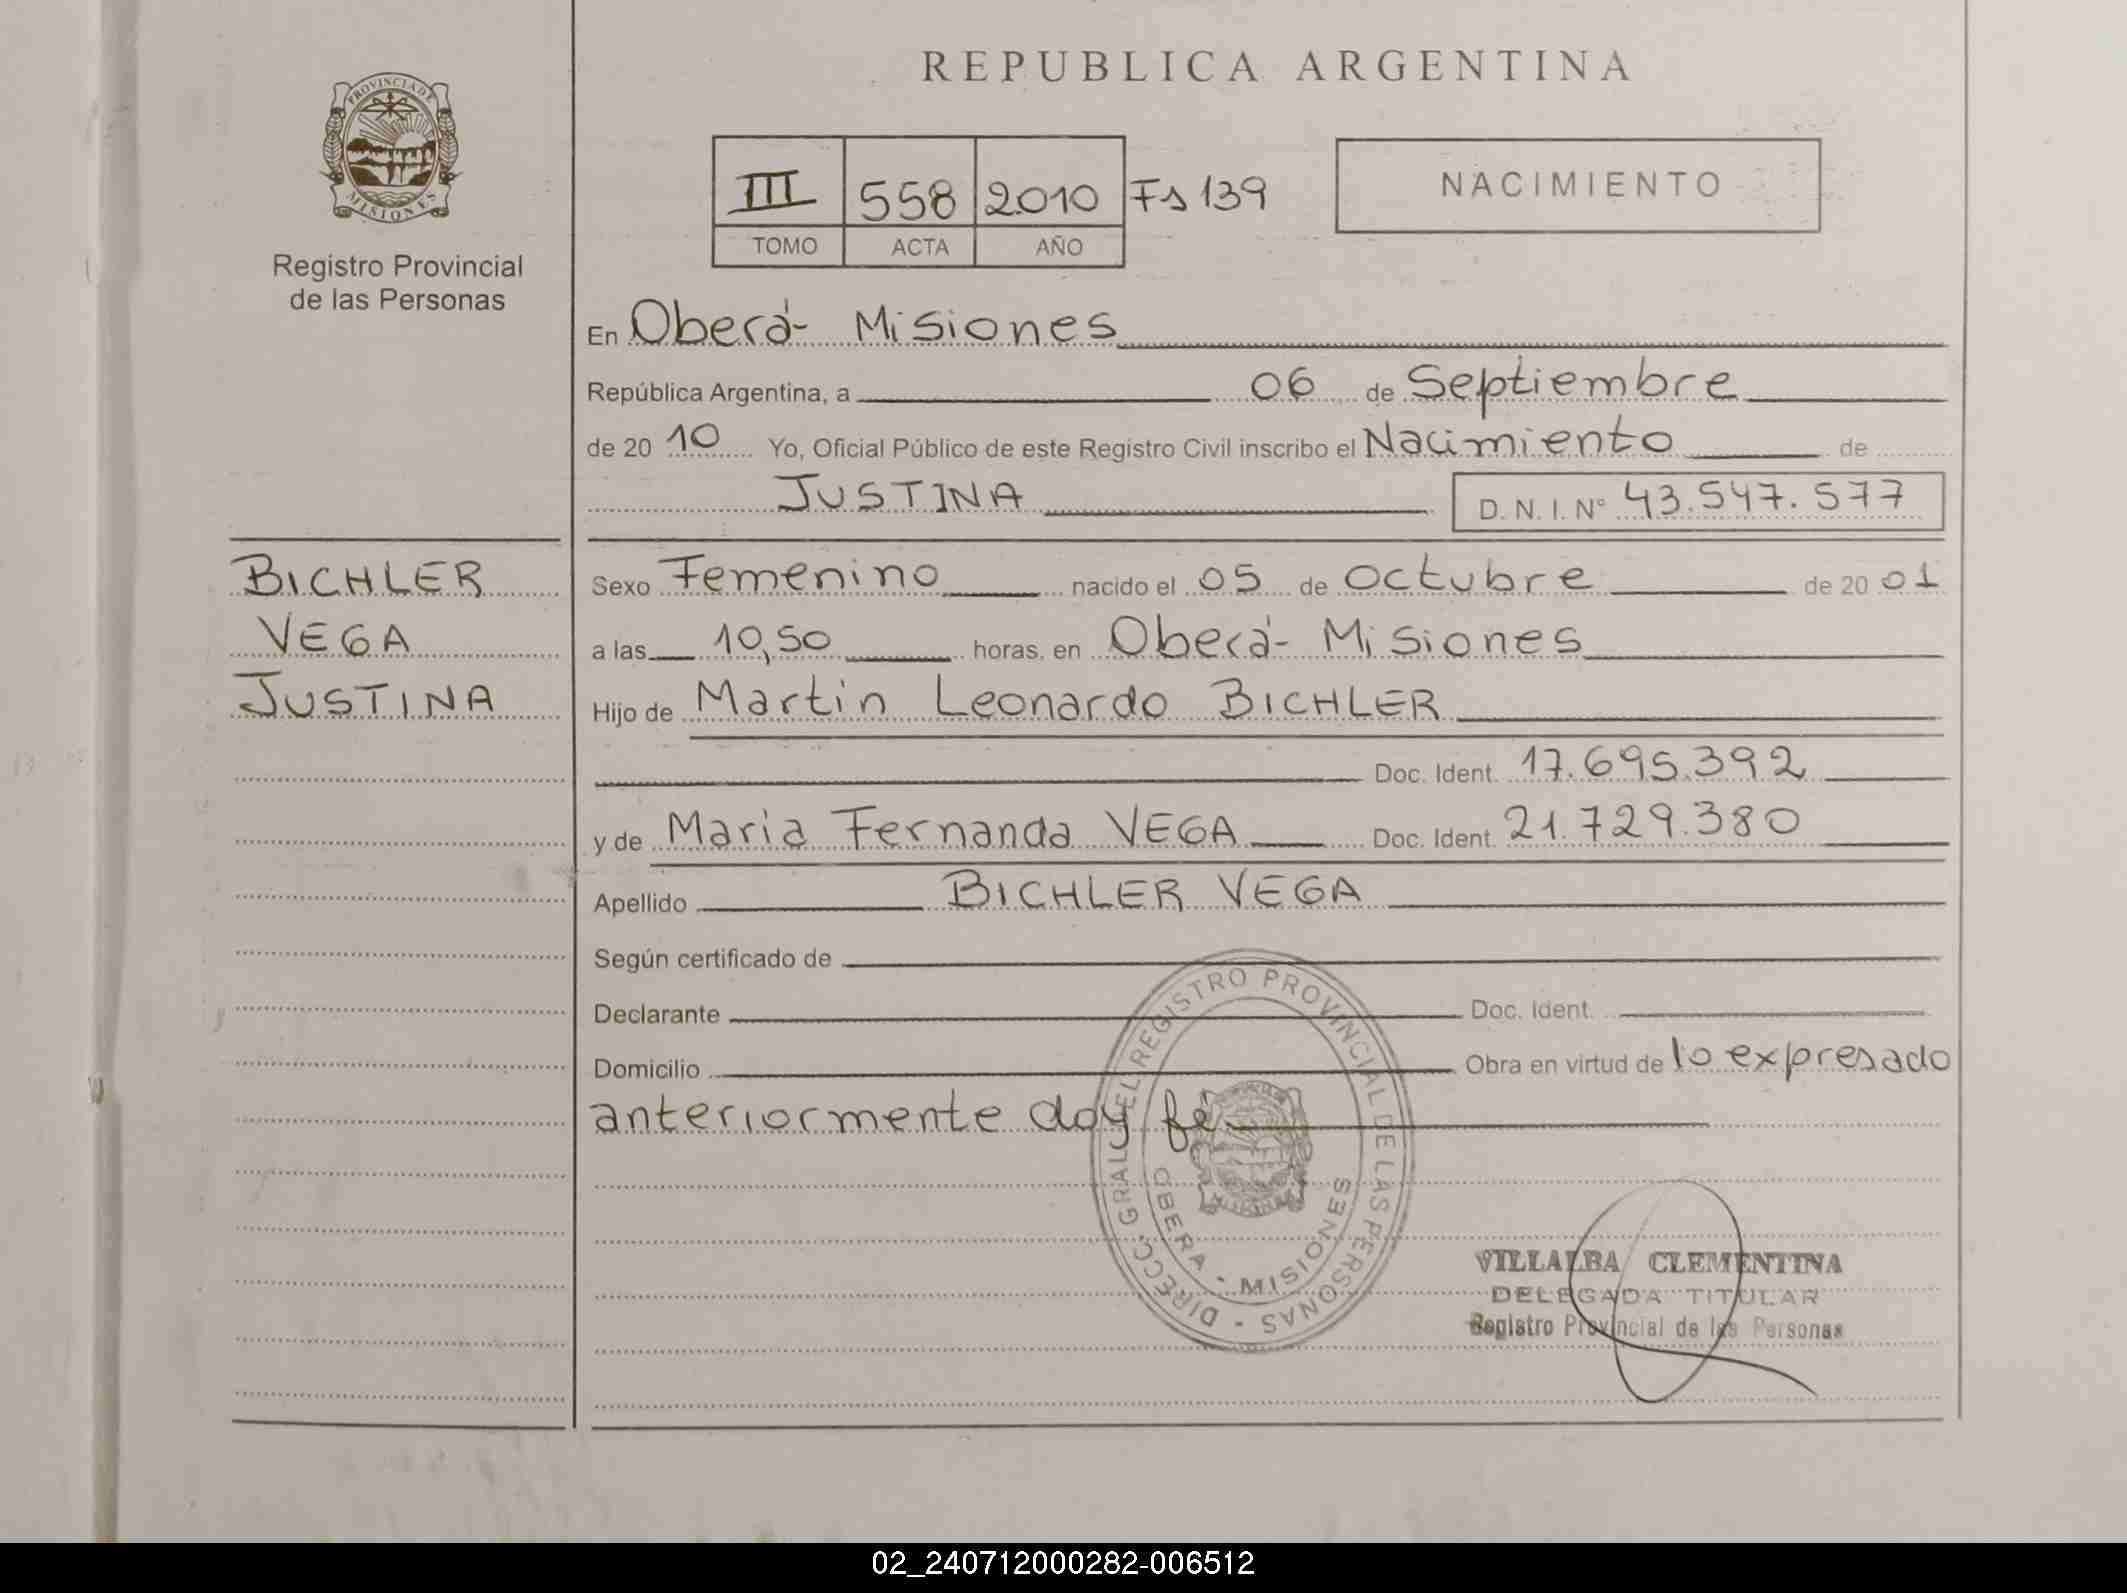 PROVINCIA DE
MISIONES
Registro Provincial
de las Personas
BICHLER
VEGA
JUSTINA
REPUBLICA ARGENTINA
III 558 2010 Fs 139
TOMO ACTA AÑO
NACIMIENTO
En Oberá- Misiones
República Argentina, a 06 de Septiembre
de 20 10 Yo, Oficial Público de este Registro Civil inscribo el Nacimiento de
JUSTINA D. N. I. Nº 43.547.577
Sexo Femenino nacido el 05 de Octubre de 20 01
a las 10,50 horas, en Oberá- Misiones
Hijo de Martin Leonardo BICHLER
Doc. Ident. 17.695.392
y de Maria Fernanda VEGA Doc. Ident. 21.729.380
Apellido BICHLER VEGA
Según certificado de
Declarante Doc. Ident.
Domicilio Obra en virtud de lo expresado
anteriormente doy fé
DIRECC. GRAL. DEL REGISTRO PROVINCIAL DE LAS PERSONAS -
OBERA - MISIONES
VILLALBA CLEMENTINA
DELEGADA TITULAR
Registro Provincial de las Personas
02_240712000282-006512